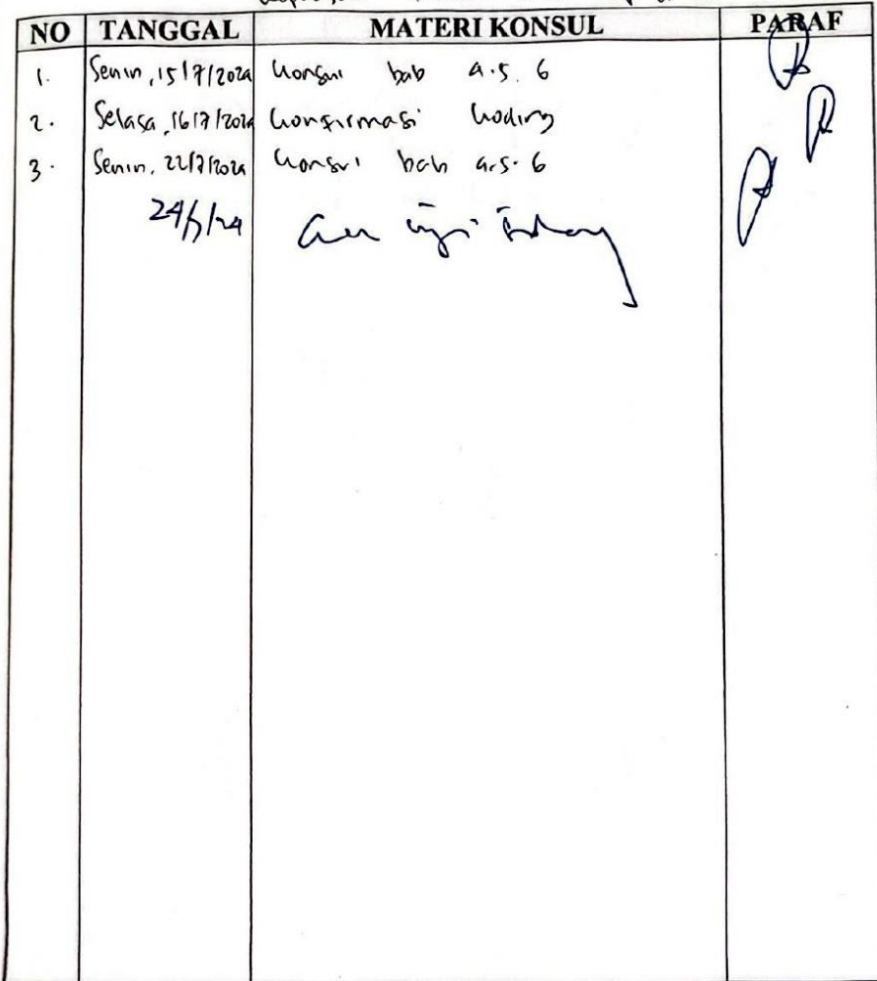 NO TANGGAL MATERI KONSUL PARAF
1. Senin, 15/7/2024 Konsul bab 4.5.6
2. Selasa, 16/7/2024 Konfirmasi koding
3. Senin, 22/7/2024 Konsul bab 4.5.6
24/7/24